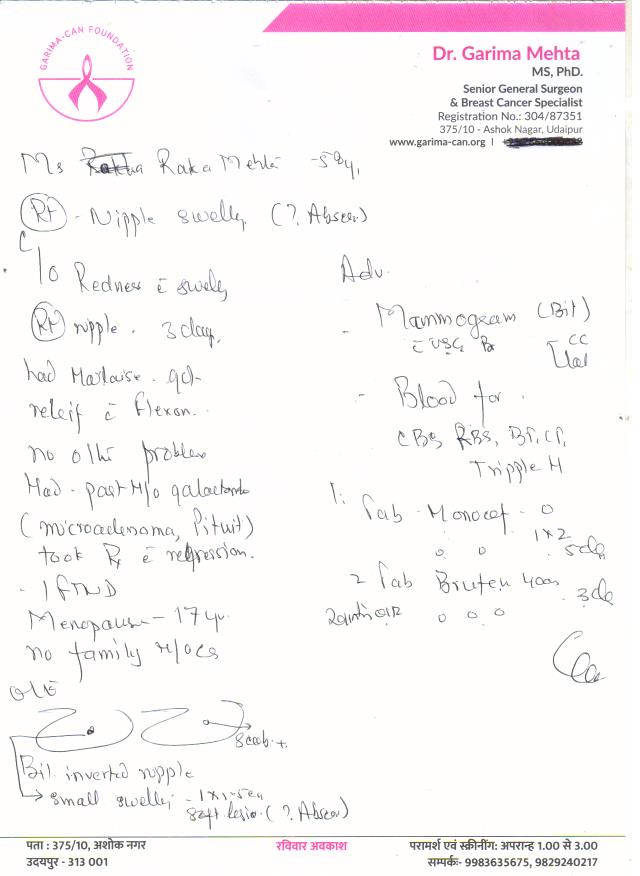 GARIMA-CAN FOUNDATION
Dr. Garima Mehta
MS, PhD.
Senior General Surgeon
& Breast Cancer Specialist
Registration No.: 304/87351
375/10 - Ashok Nagar, Udaipur
www.garima-can.org |
Ms Raka Mehta
Rt - Nipple swelly (? Absces)
C/o Redness c̄ swelly
Rt nipple. 3 day,
had Marlaise. got
releif c̄ Flexon.
no othr problem
Had - past H/o galactorrh
(microadenoma, Pituit)
took Rx c̄ regression.
- 1 FTND
Menopause - 17 yr.
no family H/o Ca
O/E
Scab +
Bil. inverted nipple
→ small swelly -
soft lesion (? Absces)
Adv.
- Mammogram (Bil)
c̄ USG Br
CC
- Blood for.
CBC, RBS, BT, CT,
Tripple H
1. Tab Monocef - O
o o 1x2
5 da
2 Tab Brufen 400
3 da
o o o
पता : 375/10, अशोक नगर
उदयपुर - 313 001
रविवार अवकाश
परामर्श एवं स्क्रीनींग: अपरान्ह 1.00 से 3.00
सम्पर्क:- 9983635675, 9829240217